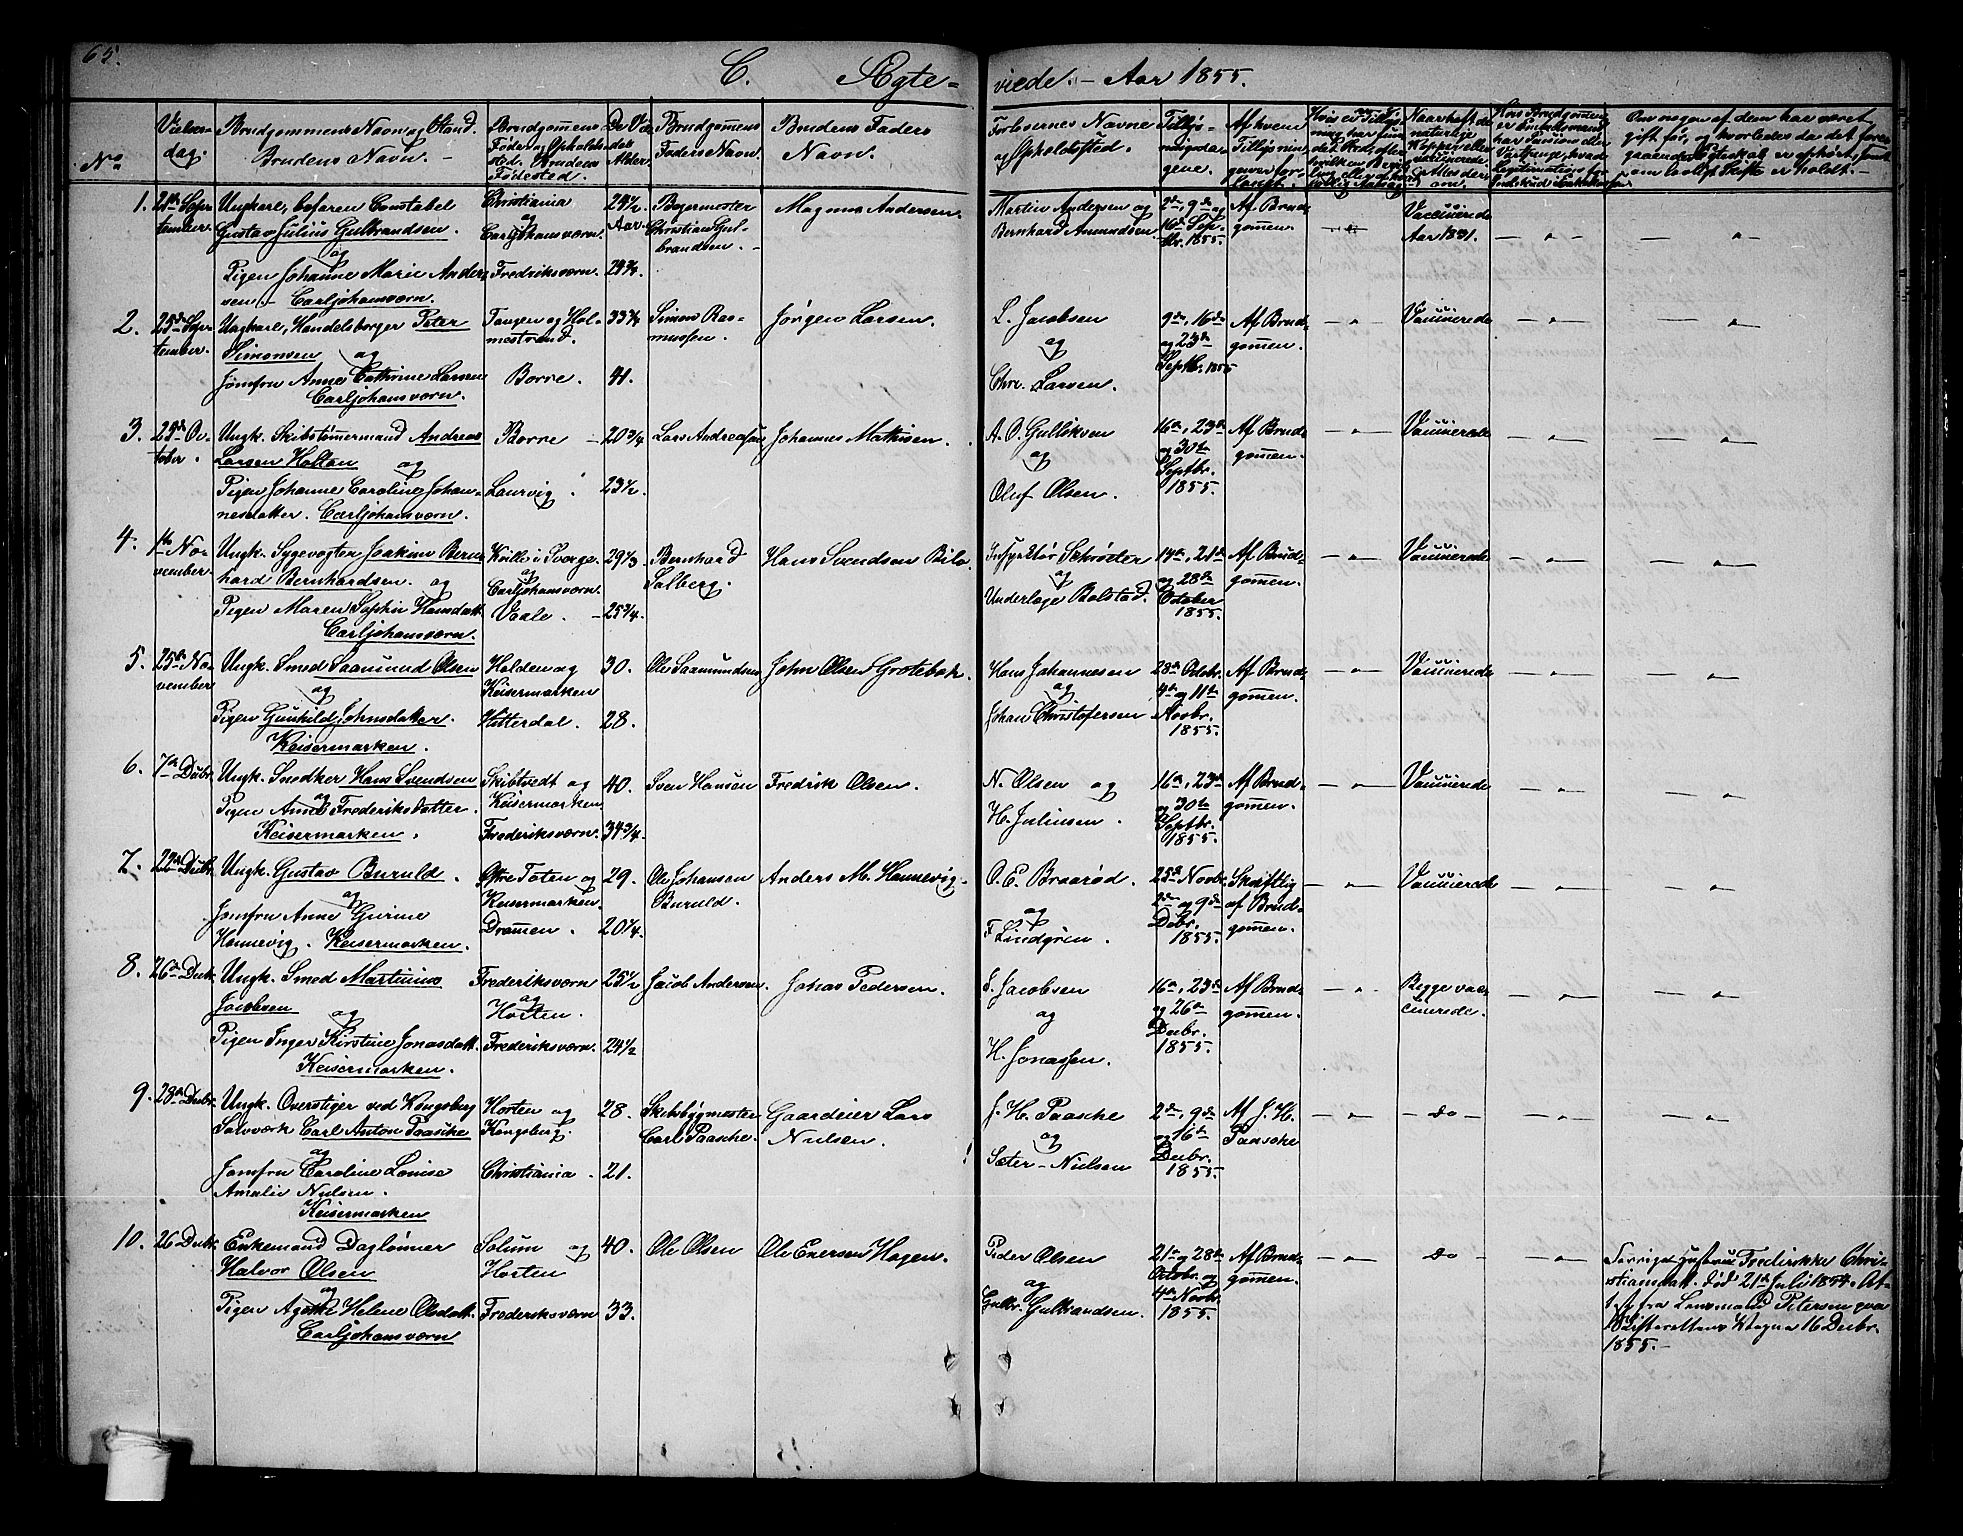 65.
C. Ægte- viede. - Aar 1855.
No
Vielses-
dag.
Brudgommens Navn og Stand.
Brudens Navn. -
Brudgomens
Føde og Opholds
sted. Brudens
Fødested.
De Vie
des
Alder
Brudgomens
Faders Navn.
Brudens Faders
Navn.
Forlovernes Navne
og Opholdssted.
Tillys-
ningsda-
gene.
Af hvem
Tillysnin-
gen er for-
langt.
Om nogen af dem har været
gift før, og hvorledes da det fore-
gaaende Ægteskab er ophørt, samt
om lovligt Skifte er holdt. -
1. Ungkarl, befaren Constabel
Gustav Julius Gulbrandsen.
og
Pigen Johanne Marie Ander-
sen. - Carljohansværn.
Christiania
og
Carljohansværn.
Fredriksværn.
24½
Aar.
24¾
Bogermester
Christian Gul-
brandsen. -
Magnus Andersen.
Martin Andersen og
Bernhard Amundsen
2de, 9de og
16de Sep-
tbr. 1855.
Af Brud-
gomen.
Vaccinerede
Aar 1831.
2. 25de Sep-
tember.
Ungkarl, Handelsborger Peter
Simonsen og
Jomfru Anne Cathrine Larsen
Carljohansværn.
Tangen og Hol-
mestrand.
Borre.
33¾
41.
Simon Ras-
mussen.
Jørgen Larsen.
L. Jacobsen
og
Chr. Larsen.
9de, 16de
og 23de
Septbr. 1855
Af Brud-
gomen.
Vaccinerede
3. Oc-
tober.
Ungk. Skibstømermand Andreas
Larsen Holtan og
Pigen Johanne Caroline Johan-
nesdatter. Carljohansværn.
Borre
Laurvig
20¾
23½.
Lars Andreasen
Johannes Mathisen.
A. O. Gulliksen
og
Oluf Olsen.
16de, 23de
og 30te
Septbr.
1855.
Af Brud-
gomen.
Vaccinerede
4. 1te No-
vember.
Ungk. Sygevogter Joakim Bern-
hard Bernhardsen. og
Pigen Maren Sophie Hansdatt.
Carljohansværn.
Kville i Sverge.
og
Carljohansværn.
Vaale.
29⅓
25¾.
Bernhard
Salberg.
Hans Svendsen Bilo.
Inspektør Schrøeter
og
Underlæge Bolstad.
14de, 21de
og 28de
October
1855.
Af Brud-
gomen.
Vaccinerede
5. 25de No-
vember
Ungk. Smed Saamund Olsen
og
Pigen Gunhild Johnsdatter.
Keisermarken.
Holden og
Keisermarken
Hitterdal.
30.
28.
Ole Saamundsen
John Olsen Grotebæk.
Hans Johannesen
og
Johan Christofersen
28de Octobr.
4de og 11te
Novbr.
1855.
Af Brud-
gomen.
Vaccinerede
6. 7de Decbr.
Ungk. Snedker Hans Svendsen
og
Pigen Anne Frederiksdatter
Keisermarken.
Skibtvedt og
Keisermarken
Frederiksværn.
40.
34¾.
Sven Hansen
Fredrik Olsen.
N. Olsen og
H. Juliusen.
16de, 23de
og 30te
Septbr.
1855.
Af Brud-
gomen.
Vaccinerede
7. 22de Decbr.
Ungk. Gustav Buruld.
og
Jomfru Anne Gurine
Hannevig. Keisermarken.
Østre Toten og
Keisermarken.
Dramen.
29.
20¼.
Ole Johansen
Buruld.
Anders M. Hannevig.
O. E. Braarød.
og
F Lindgrén.
25de Novbr.
2de og 9de
Decbr.
1855.
Skriftlig
af Brud-
gomen.
Vaccinerede
8. 26de Decbr.
Ungk. Smed Martinius
Jacobsen og
Pigen Inger Kirstine Jonasdatt.
Keisermarken.
Frederiksværn
og
Horten.
Frederiksværn.
25½
24½
Jacob Andersen.
Johas Pedersen.
J. Jacobsen
og
H. Jonassen.
16de, 23de
og 26de
Decbr.
1855.
Af Brud-
gomen.
Begge vac-
cinerede.
9. 28de Decbr.
Ungk. Overstiger ved Kongsberg
Sølvværk Carl Anton Paasche
og
Jomfru Caroline Louise
Amalie Nielsen.
Keisermarken
Horten og
Kongsberg.
Christiania
28.
21.
Skibsbygmester
Carl Paasche.
Gaardeier Lars
Nielsen.
J. H. Paasche
og
Peter Nielsen
2de, 9de
og 16de
Decbr.
1855.
Af J. H.
Paasche
do
10. 26 Decbr.
Enkemand Dagløner
Halvor Olsen
og
Pigen Agathe Helene Olsdatt.
Carljohansværn
Solum og
Horten
Frederiksværn
40.
33.
Ole Olsen
Ole Enersen Hagen.
Peder Olsen
og
Gulbr. Gulbrandsen.
21de og 28de
Octobr. og
4de Novbr.
1855.
Af Brud-
gomen.
do
Forrige Hustrue Fredrikke Chri-
stiansdatt. død 21de Juli 1854. At-
test fra Lensmand Petersen paa
Skifterettens Vegne 16 Decbr.
1855. -